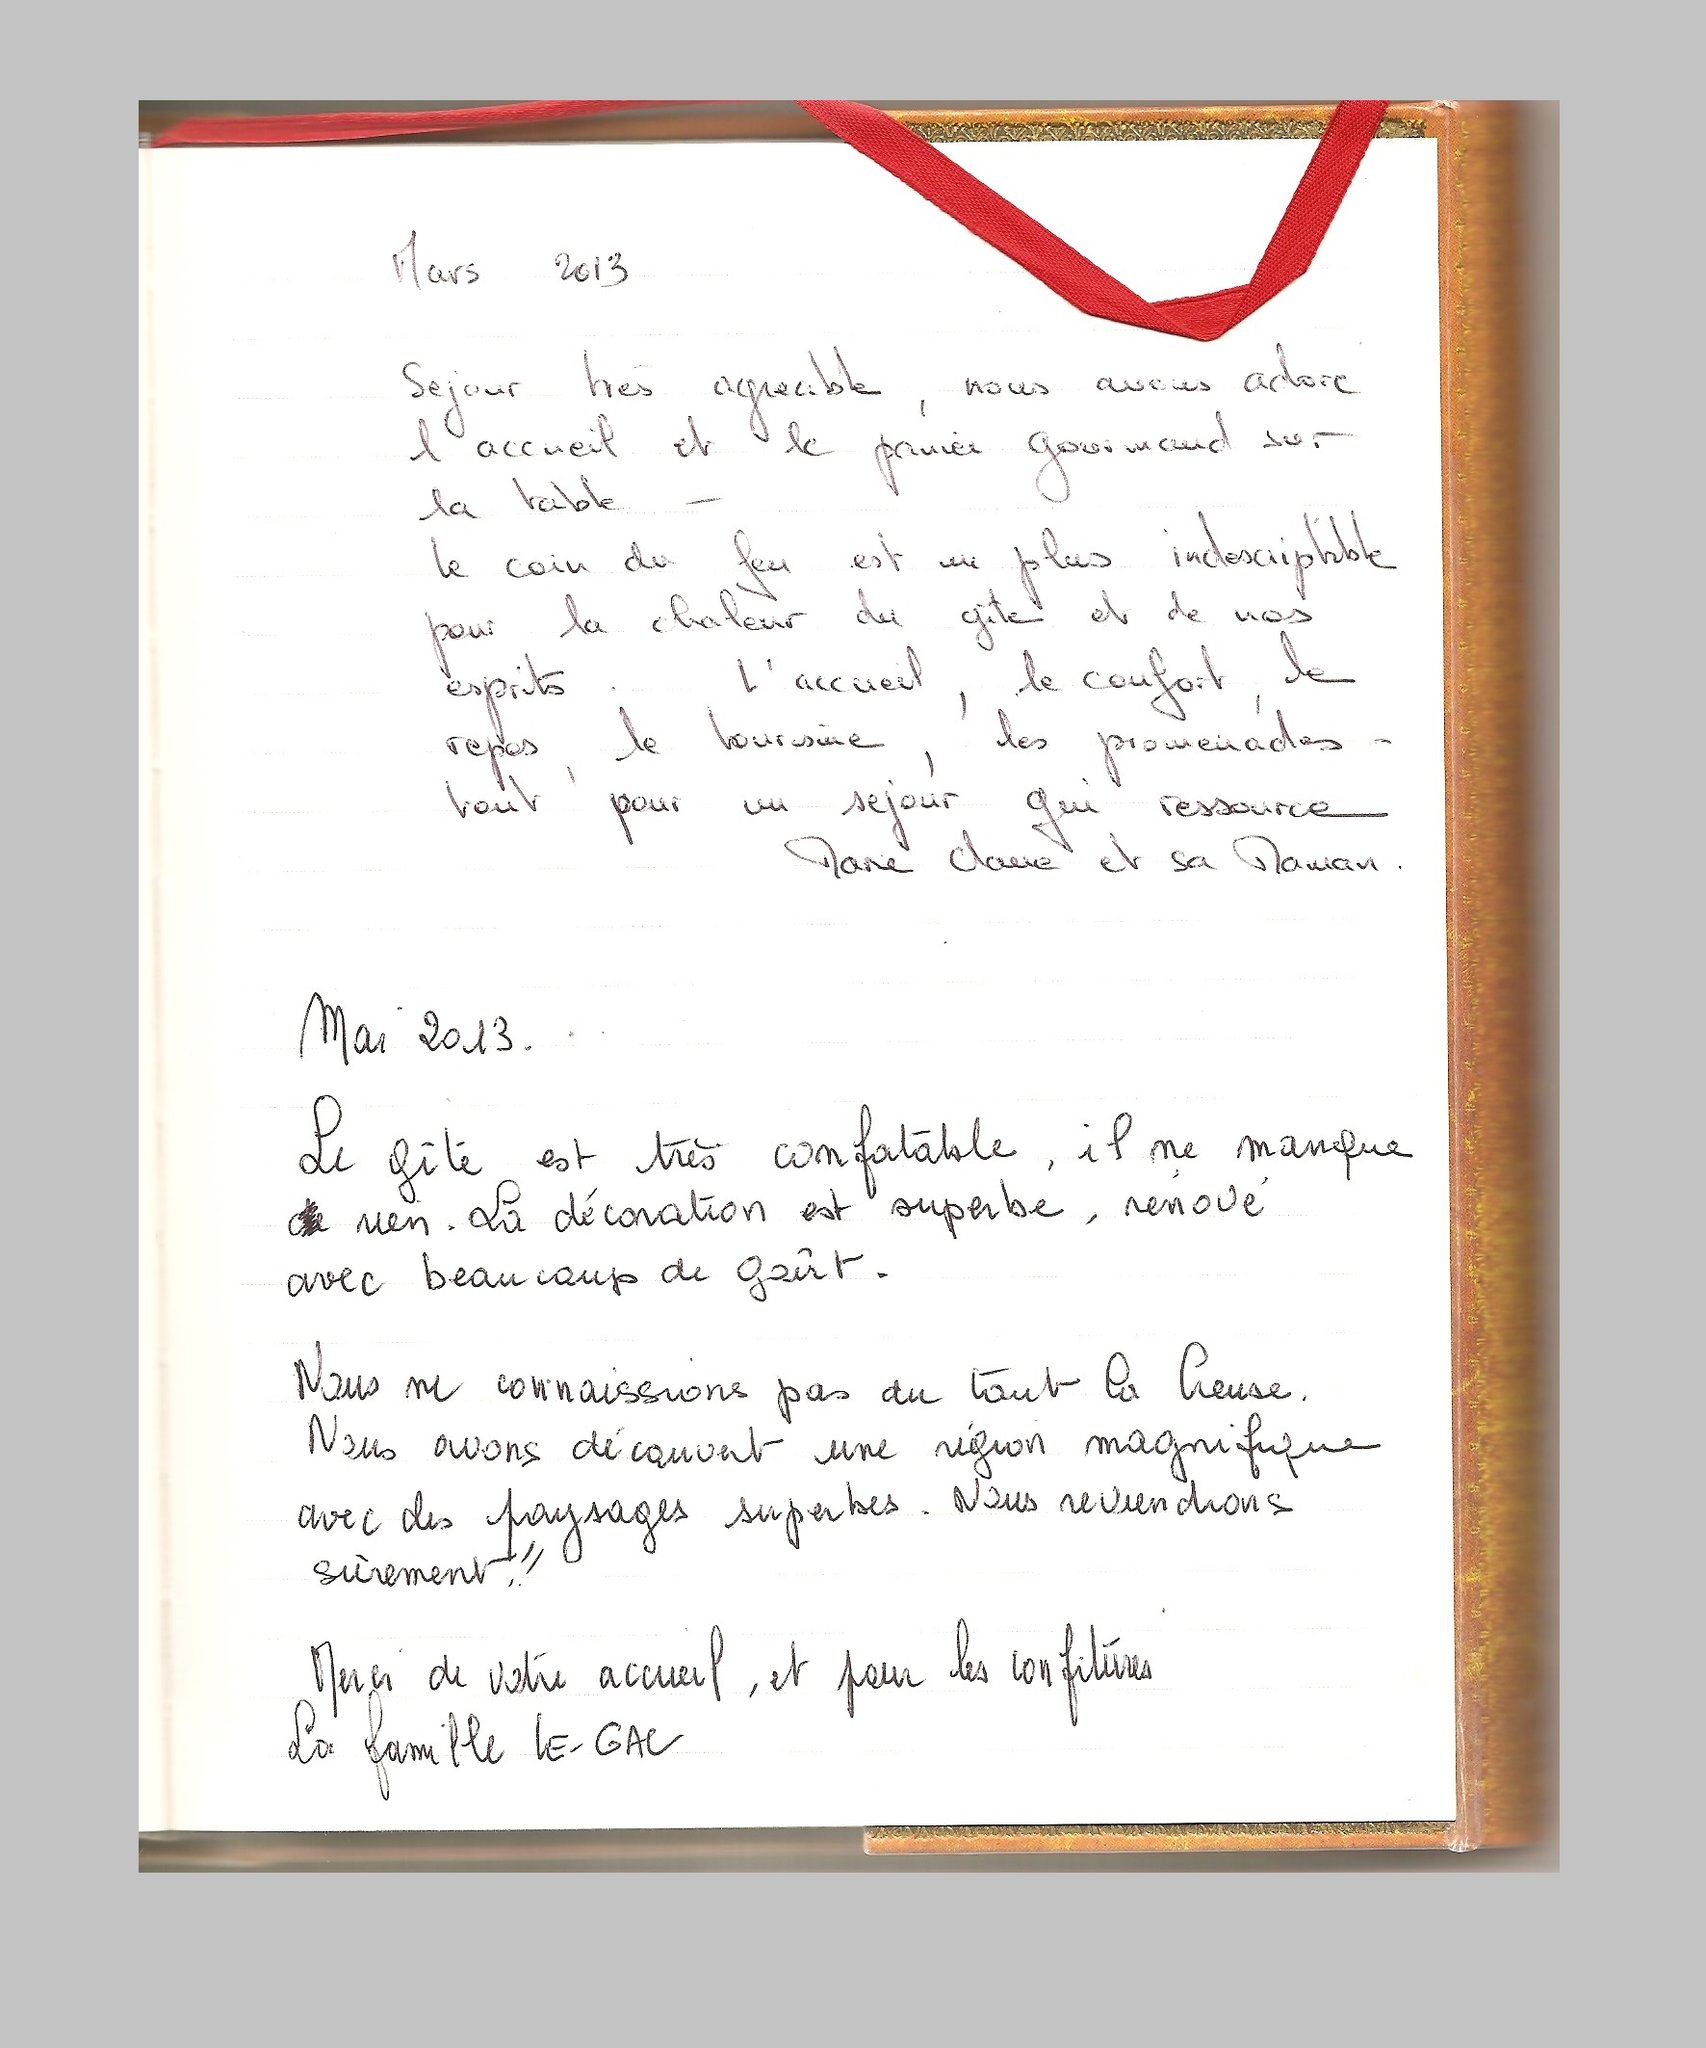 Mars 2013
Sejour très agreable, nous avons adoré
l'accueil et le panier gourmand sur
la table -
le coin du feu est un plus indescriptible
pour la chaleur du gîte et de nos
esprits. L'accueil, le confort, le
repos, le tourisme, les promenades -
tout pour un sejour qui ressource
Marie Claire et sa Maman.
Mai 2013.
Le gîte est très confortable, il ne manque
de rien. La décoration est superbe, rénové
avec beaucoup de goût.
Nous ne connaissions pas du tout la Creuse.
Nous avons découvert une région magnifique
avec des paysages superbes. Nous reviendrons
sûrement!!
Merci de votre accueil, et pour les confitures
La famille LE-GAC